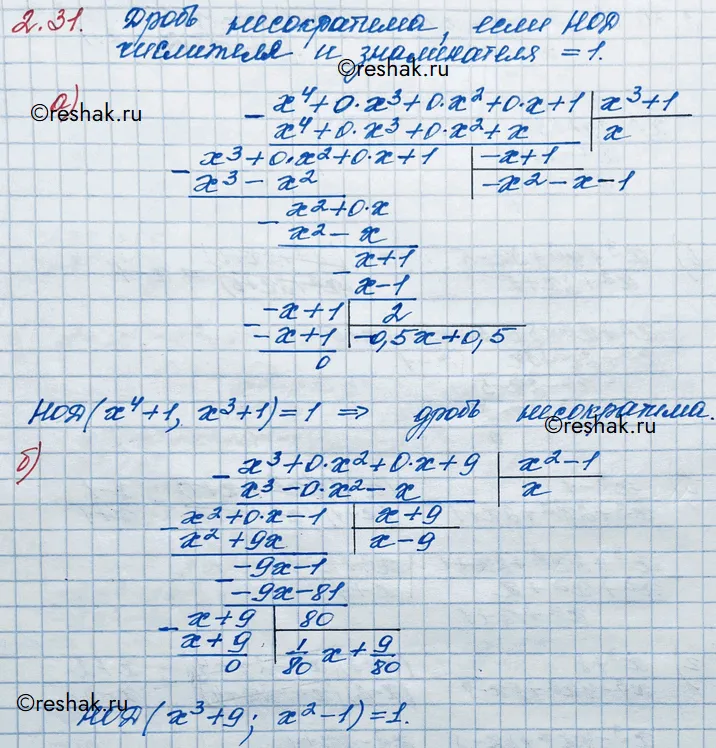 2.31. Дробь несократима, если НОД
числителя и знаменателя = 1.
©reshak.ru
а)
©reshak.ru
- x⁴+0·x³+0·x²+0·x+1 | x³+1
x⁴+0·x³+0·x²+x | x
- x³+0·x²+0·x+1 | -x+1
x³ - x² | -x²-x-1
- x²+0·x
x² - x
- x+1
x-1
- -x+1 | 2
-x+1 | -0,5x+0,5
0
НОД(x⁴+1, x³+1)=1 ⇒ дробь несократима.
©reshak.ru
б)
- x³+0·x²+0·x+9 | x²-1
x³-0·x²-x | x
- x²+0·x-1 | x+9
x²+9x | x-9
- -9x-1
-9x-81
- x+9 | 80
x+9 | 1/80 x + 9/80
0
©reshak.ru
НОД(x³+9; x²-1)=1.
©reshak.ru